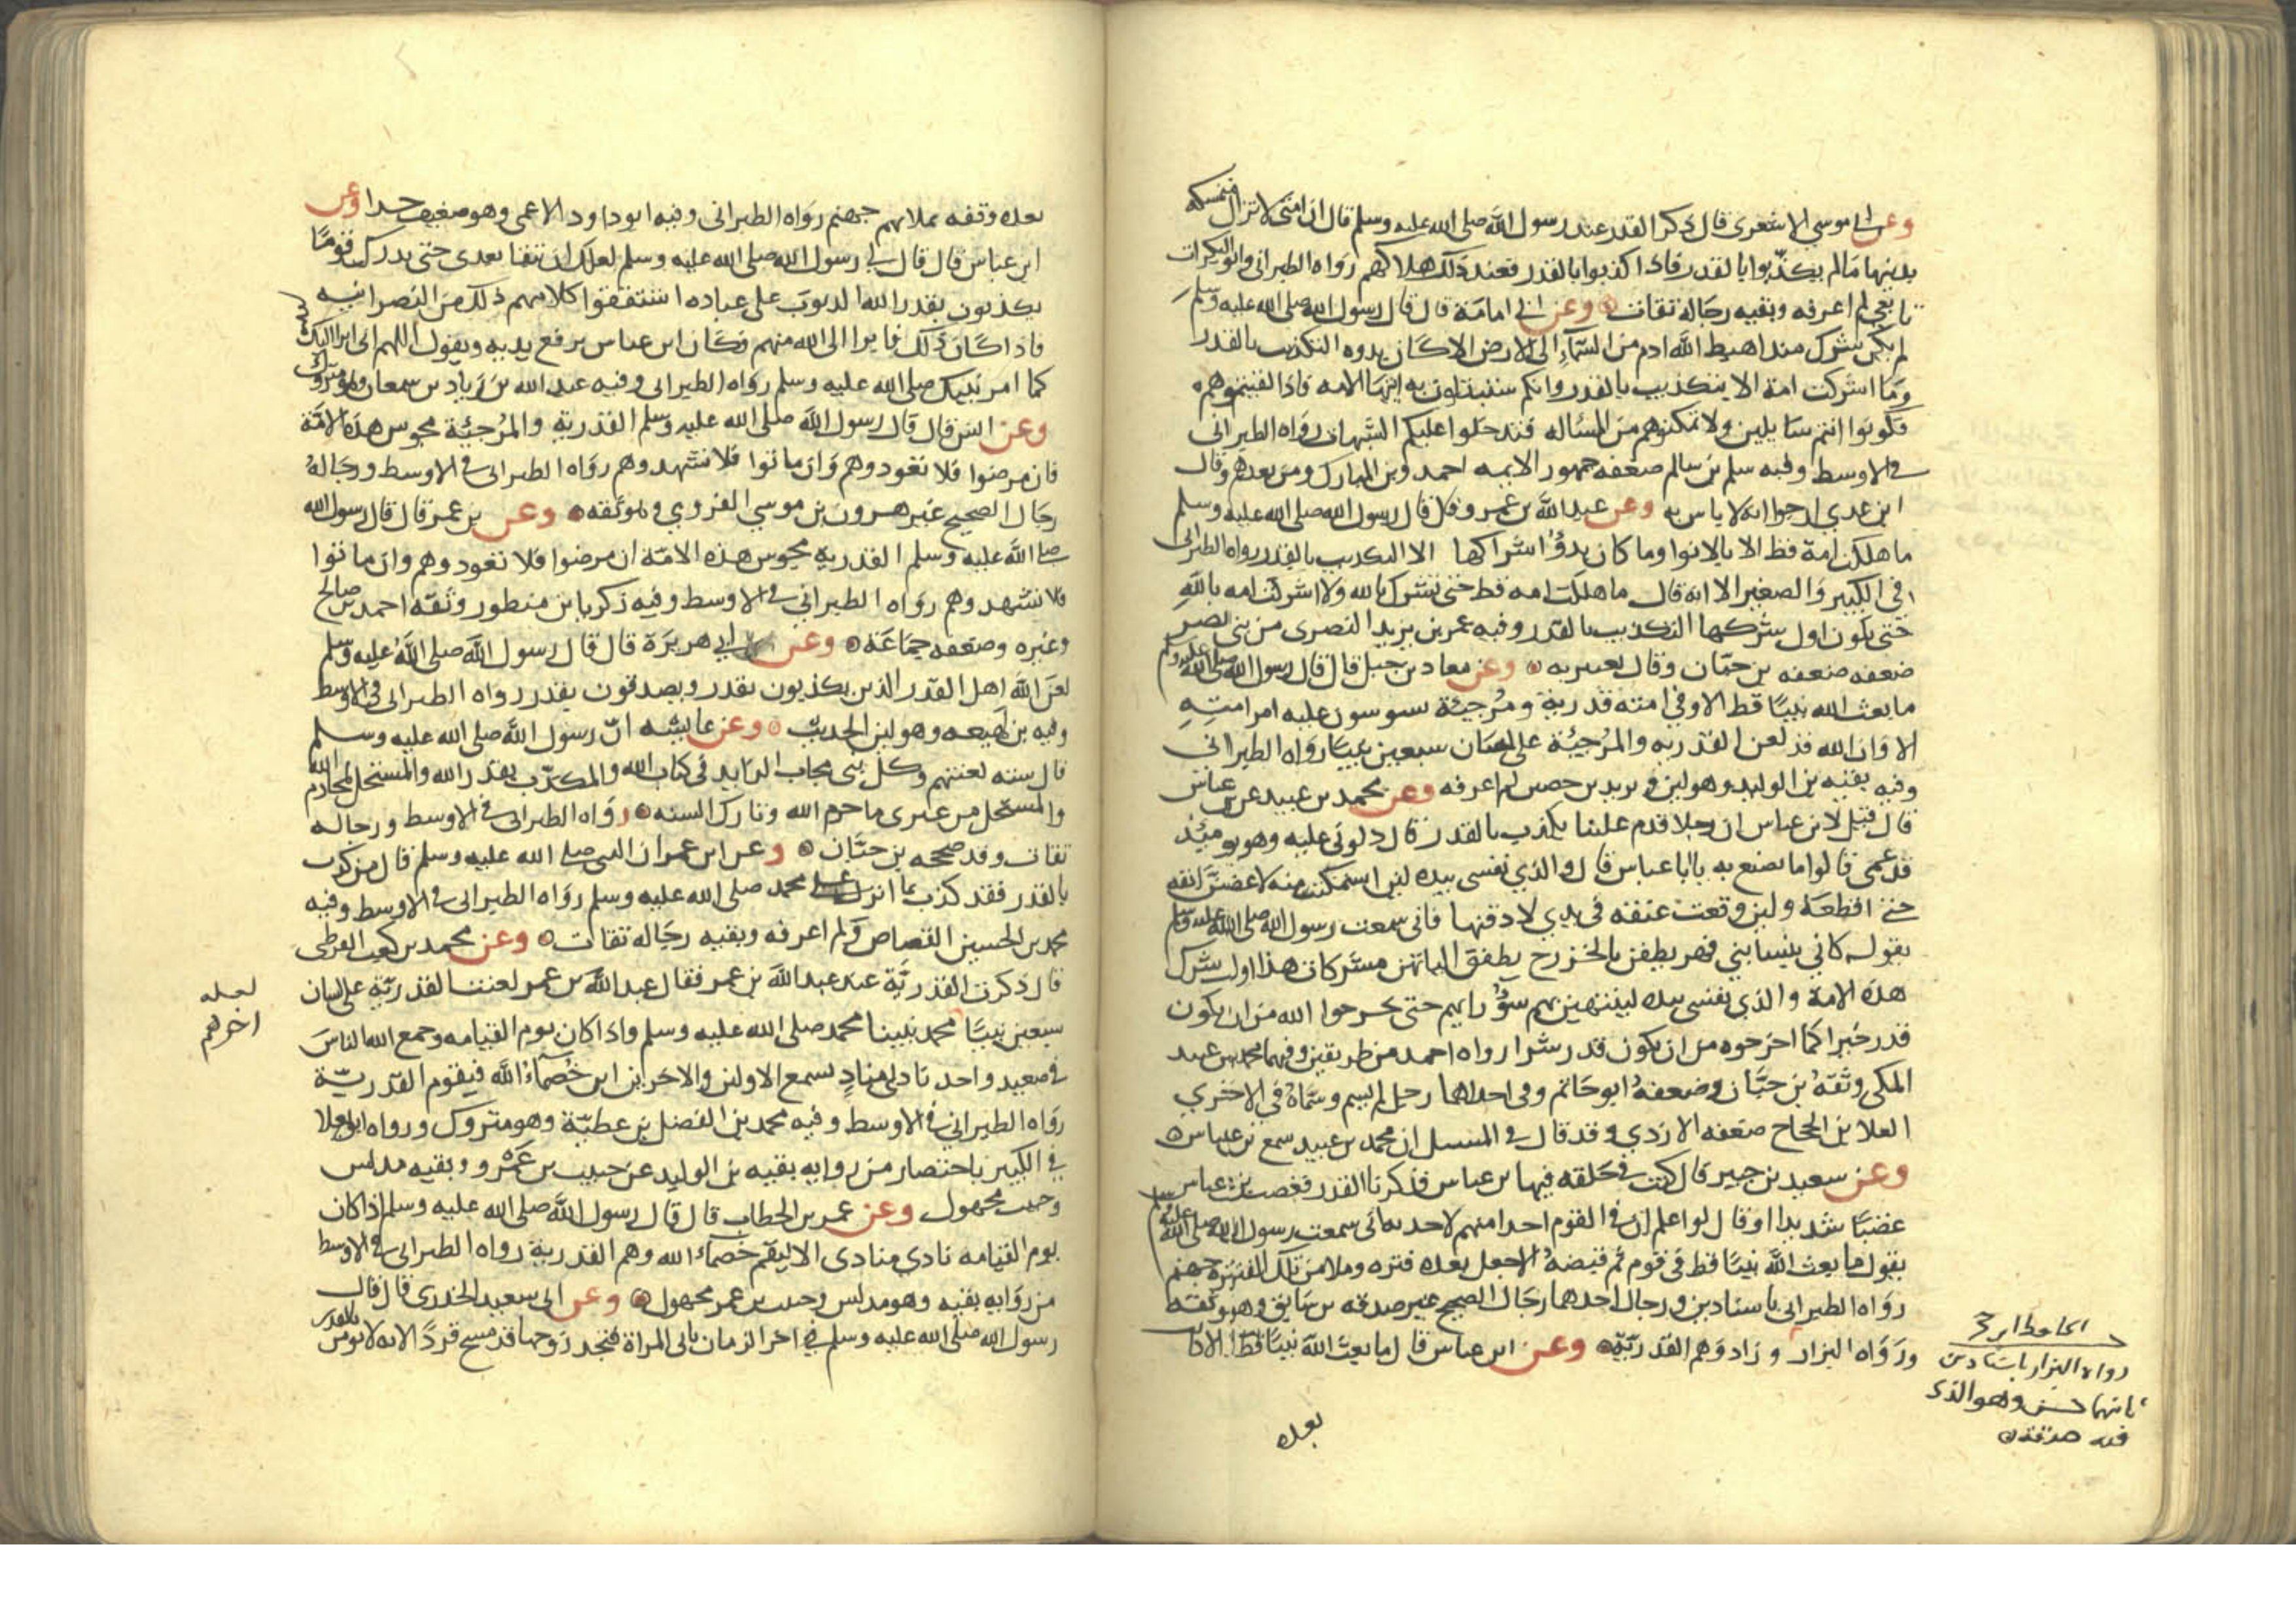 وعن ابي موسي الاشعري قال ذكر القدر عند رسول الله صلى الله عليه وسلم قال ان امتى لا تزال متمسكه
بدينها مالم يكذبوا بالقدر فاذا كذبوا بالقدر فعند ذلك هلاكهم رواه الطبراني وابو البكرات
تابعي لم اعرفه وبقيه رجاله ثقات وعن ابي امامة قال قال رسول الله صلى الله عليه وسلم
لم يكن شرك منذ اهبط الله ادم من السماء الى الارض الا كان بدوه التكذيب بالقدر
وما اشركت امة الا بتكذيب بالقدر وانكم ستبتلون به ايتها الامه فاذا لقيتموهم
فكونوا انتم سايلين ولا تمكنوهم من المساله فيدخلوا عليكم الشبهات رواه الطبراني
في الاوسط وفيه سلم بن سالم ضعفه جمهور الايمه احمد وبن المبارك ومن بعدهم وقال
ابن عدي ارجوا انه لا باس به وعن عبد الله بن عمرو قال قال رسول الله صلى الله عليه وسلم
ما هلكت امة قط الا بالانوا وما كان بدؤ اشراكها الا التكذيب بالقدر رواه الطبراني
في الكبير والصغير الا انه قال ما هلكت امه قط حتى تشرك بالله ولا اشركت امه بالله
حتى يكون اول شركها التكذيب بالقدر وفيه عمر بن يزيد النصرى من بني نصر
ضعفه ضعفه بن حبان وقال يعتبر به وعن معاد بن جبل قال قال رسول الله صلى الله عليه وسلم
ما بعث الله نبيا قط الا وفي امته قدرية ومرجئة يشوشون عليه امر امته
الا وان الله قد لعن القدريه والمرجئة على لسان سبعين نبيا رواه الطبراني
وفيه بقيه بن الوليد وهو لين ويزيد بن حصين لم اعرفه وعن محمد بن عبيد عن بن عباس
قال قيل لابن عباس ان رجلا قدم علينا يكذب بالقدر قال دلوني عليه وهو يوميذ
قد عمى قالوا ما تصنع به يا ابا عباس قال والذي نفسى بيده لين استمكنت منه لاعضن انفه
حتي اقطعه ولين وقعت عنقه في يدي لادقنها فاني سمعت رسول الله صلى الله عليه وسلم
يقول كاني بنسا بني فهر يطفن بالخزرج يطفق الياتهن مشركات هذا اول شرك
هذه الامة والذي نفسى بيده لينتهين بهم سؤ رايهم حتى يخرجوا الله من ان يكون
قدر خيرا كما اخرجوه من ان يكون قدر شرا رواه احمد من طريقين وفيهما محمد بن عبيد
المكي وثقه بن حبان وضعفه ابو حاتم وفي احداهما رجل لم يسم وسماه في الاخرى
العلا بن الحجاج ضعفه الازدي وقد قال في المسند ان محمد بن عبيد سمع بن عباس
وعن سعيد بن جبير قال كنت في حلقه فيها بن عباس فذكرنا القدر فغضب بن عباس
غضبا شديدا وقال لو اعلم ان في القوم احدا منهم لاخذ به اني سمعت رسول الله صلى الله عليه وسلم
يقول ما بعث الله نبيا قط في قوم ثم قبضه الا جعل بعده فتره وملا من تلك الفتره جهنم
رواه الطبراني باسنادين ورجال احدهما رجال الصحيح غير صدقه بن سابق وهو ثقه
ورواه البزار وزاد وهم القدرية وعن ابن عباس قال ما بعث الله نبيا قط الا كان
الحافظ ابن حجر
رواه البزار باسنادين
ثانيهما حسن وهو الذي
فيه صدقة
بعده
بعده وقفه تملا بهم جهنم رواه الطبراني وفيه ابو داود الاعمى وهو ضعيف جدا وعن
ابن عباس قال قال لي رسول الله صلى الله عليه وسلم لعلك ان تبقا بعدي حتى تدرك قوما
يكذبون بقدر الله الذنوب على عباده اشتقوا كلامهم ذلك من النصرانيه
فاذا كان ذلك فابرا الى الله منهم وكان ابن عباس يرفع يديه ويقول اللهم اني ابرا اليك
كما امر نبيك صلى الله عليه وسلم رواه الطبراني وفيه عبد الله بن زياد بن سمعان وهو متروك
وعن انس قال قال رسول الله صلى الله عليه وسلم القدرية والمرجئة مجوس هذه الامة
فان مرضوا فلا تعودوهم وان ماتوا فلا تشهدوهم رواه الطبراني في الاوسط ورجاله
رجال الصحيح غير هرون بن موسي الفروي وهو ثقه وعن بن عمر قال قال رسول الله
صلى الله عليه وسلم القدرية مجوس هذه الامة ان مرضوا فلا تعودوهم وان ماتوا
فلا تشهدوهم رواه الطبراني في الاوسط وفيه زكريا بن منظور وثقه احمد بن صالح
وغيره وضعفه جماعة وعن ابي هريرة قال قال رسول الله صلى الله عليه وسلم
لعن الله اهل القدر الذين يكذبون بقدر ويصدقون بقدر رواه الطبراني في الاوسط
وفيه بن لهيعه وهو لين الحديث وعن عايشه ان رسول الله صلى الله عليه وسلم
قال ستة لعنتهم وكل نبي مجاب الزايد في كتاب الله والمكذب بقدر الله والمستحل لمحارم الله
والمستحل من عترى ما حرم الله وتارك السنه رواه الطبراني في الاوسط ورجاله
ثقات وقد صححه بن حبان وعن ابن عمر ان النبي صلى الله عليه وسلم قال من كذب
بالقدر فقد كذب بما انزل على محمد صلى الله عليه وسلم رواه الطبراني في الاوسط وفيه
محمد بن الحسين القصاص ولم اعرفه وبقيه رجاله ثقات وعن محمد بن كعب القرظي
قال ذكرت القدرية عند عبد الله بن عمر فقال عبد الله بن عمر لعنت القدرية على لسان
سبعين نبيا محمد نبينا محمد صلى الله عليه وسلم واذا كان يوم القيامه وجمع الله الناس
في صعيد واحد نادى مناد يسمع الاولين والاخرين اين خصماء الله فيقوم القدرية
رواه الطبراني في الاوسط وفيه محمد بن الفضل بن عطية وهو متروك ورواه ابو يعلا
في الكبير باختصار من رواية بقيه بن الوليد عن حبيب بن عمرو وبقيه مدلس
وحبيب مجهول وعن عمر بن الخطاب قال قال رسول الله صلى الله عليه وسلم اذا كان
يوم القيامه نادي منادى الا ليقم خصماء الله وهم القدرية رواه الطبراني في الاوسط
من روايه بقيه وهو مدلس وحبيب بن عمر مجهول وعن ابي سعيد الخدري قال قال
رسول الله صلى الله عليه وسلم في اخر الزمان ياتي المراة فتجد زوجها قد مسخ قردا لانه لا يومن بالقدر
لعله
اخرهم